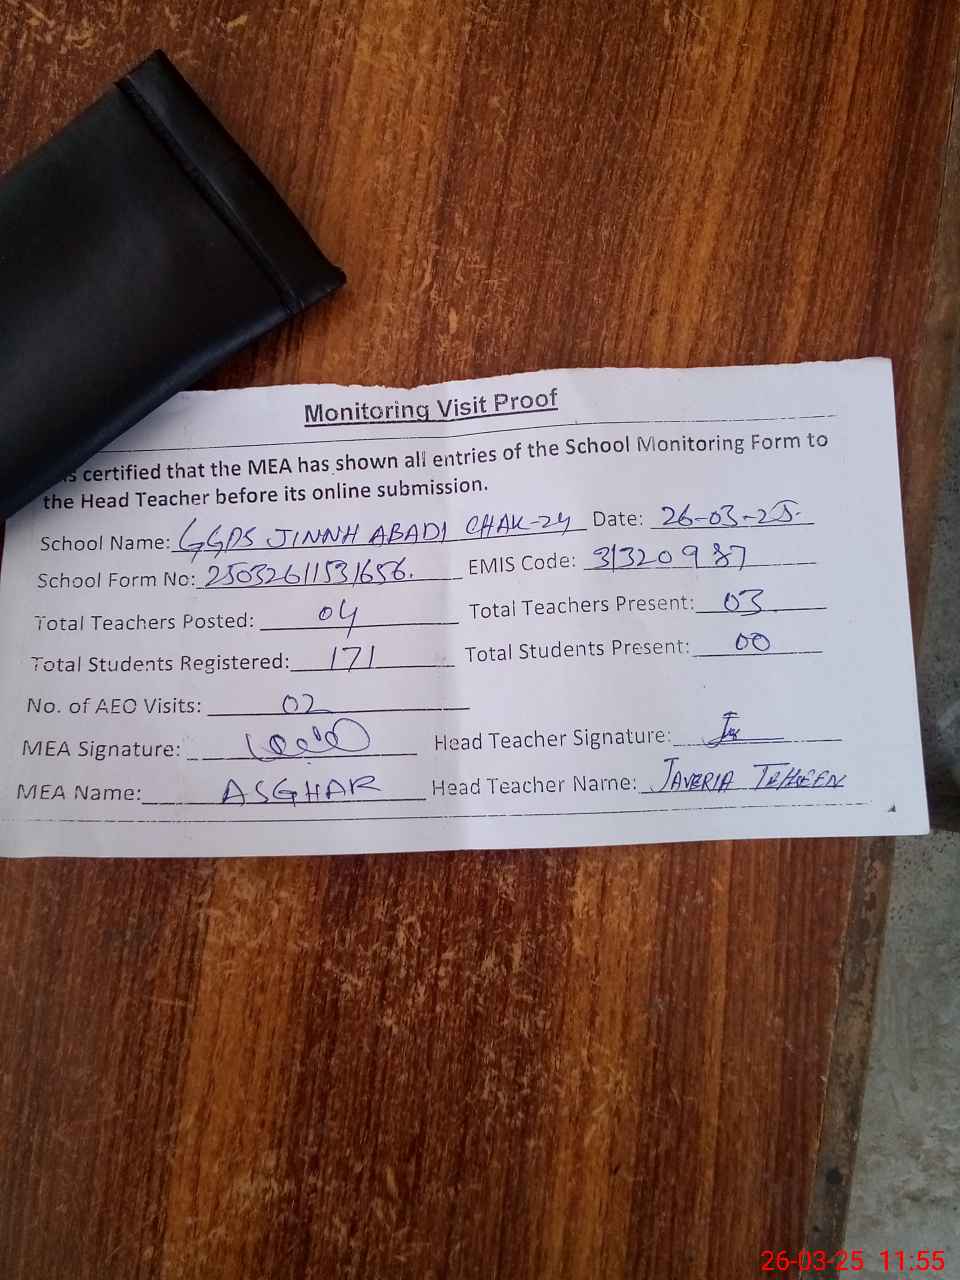 Monitoring Visit Proof
is certified that the MEA has shown all entries of the School Monitoring Form to
the Head Teacher before its online submission.
School Name: GGPS JINNH ABADI CHAK-24 Date: 26-03-25.
School Form No: 25032611531656. EMIS Code: 31320987
Total Teachers Posted: 04 Total Teachers Present: 03
Total Students Registered: 171 Total Students Present: 00
No. of AEO Visits: 02
MEA Signature: Head Teacher Signature:
MEA Name: ASGHAR Head Teacher Name: JAVERIA TEHSEEN
26-03-25 11:55